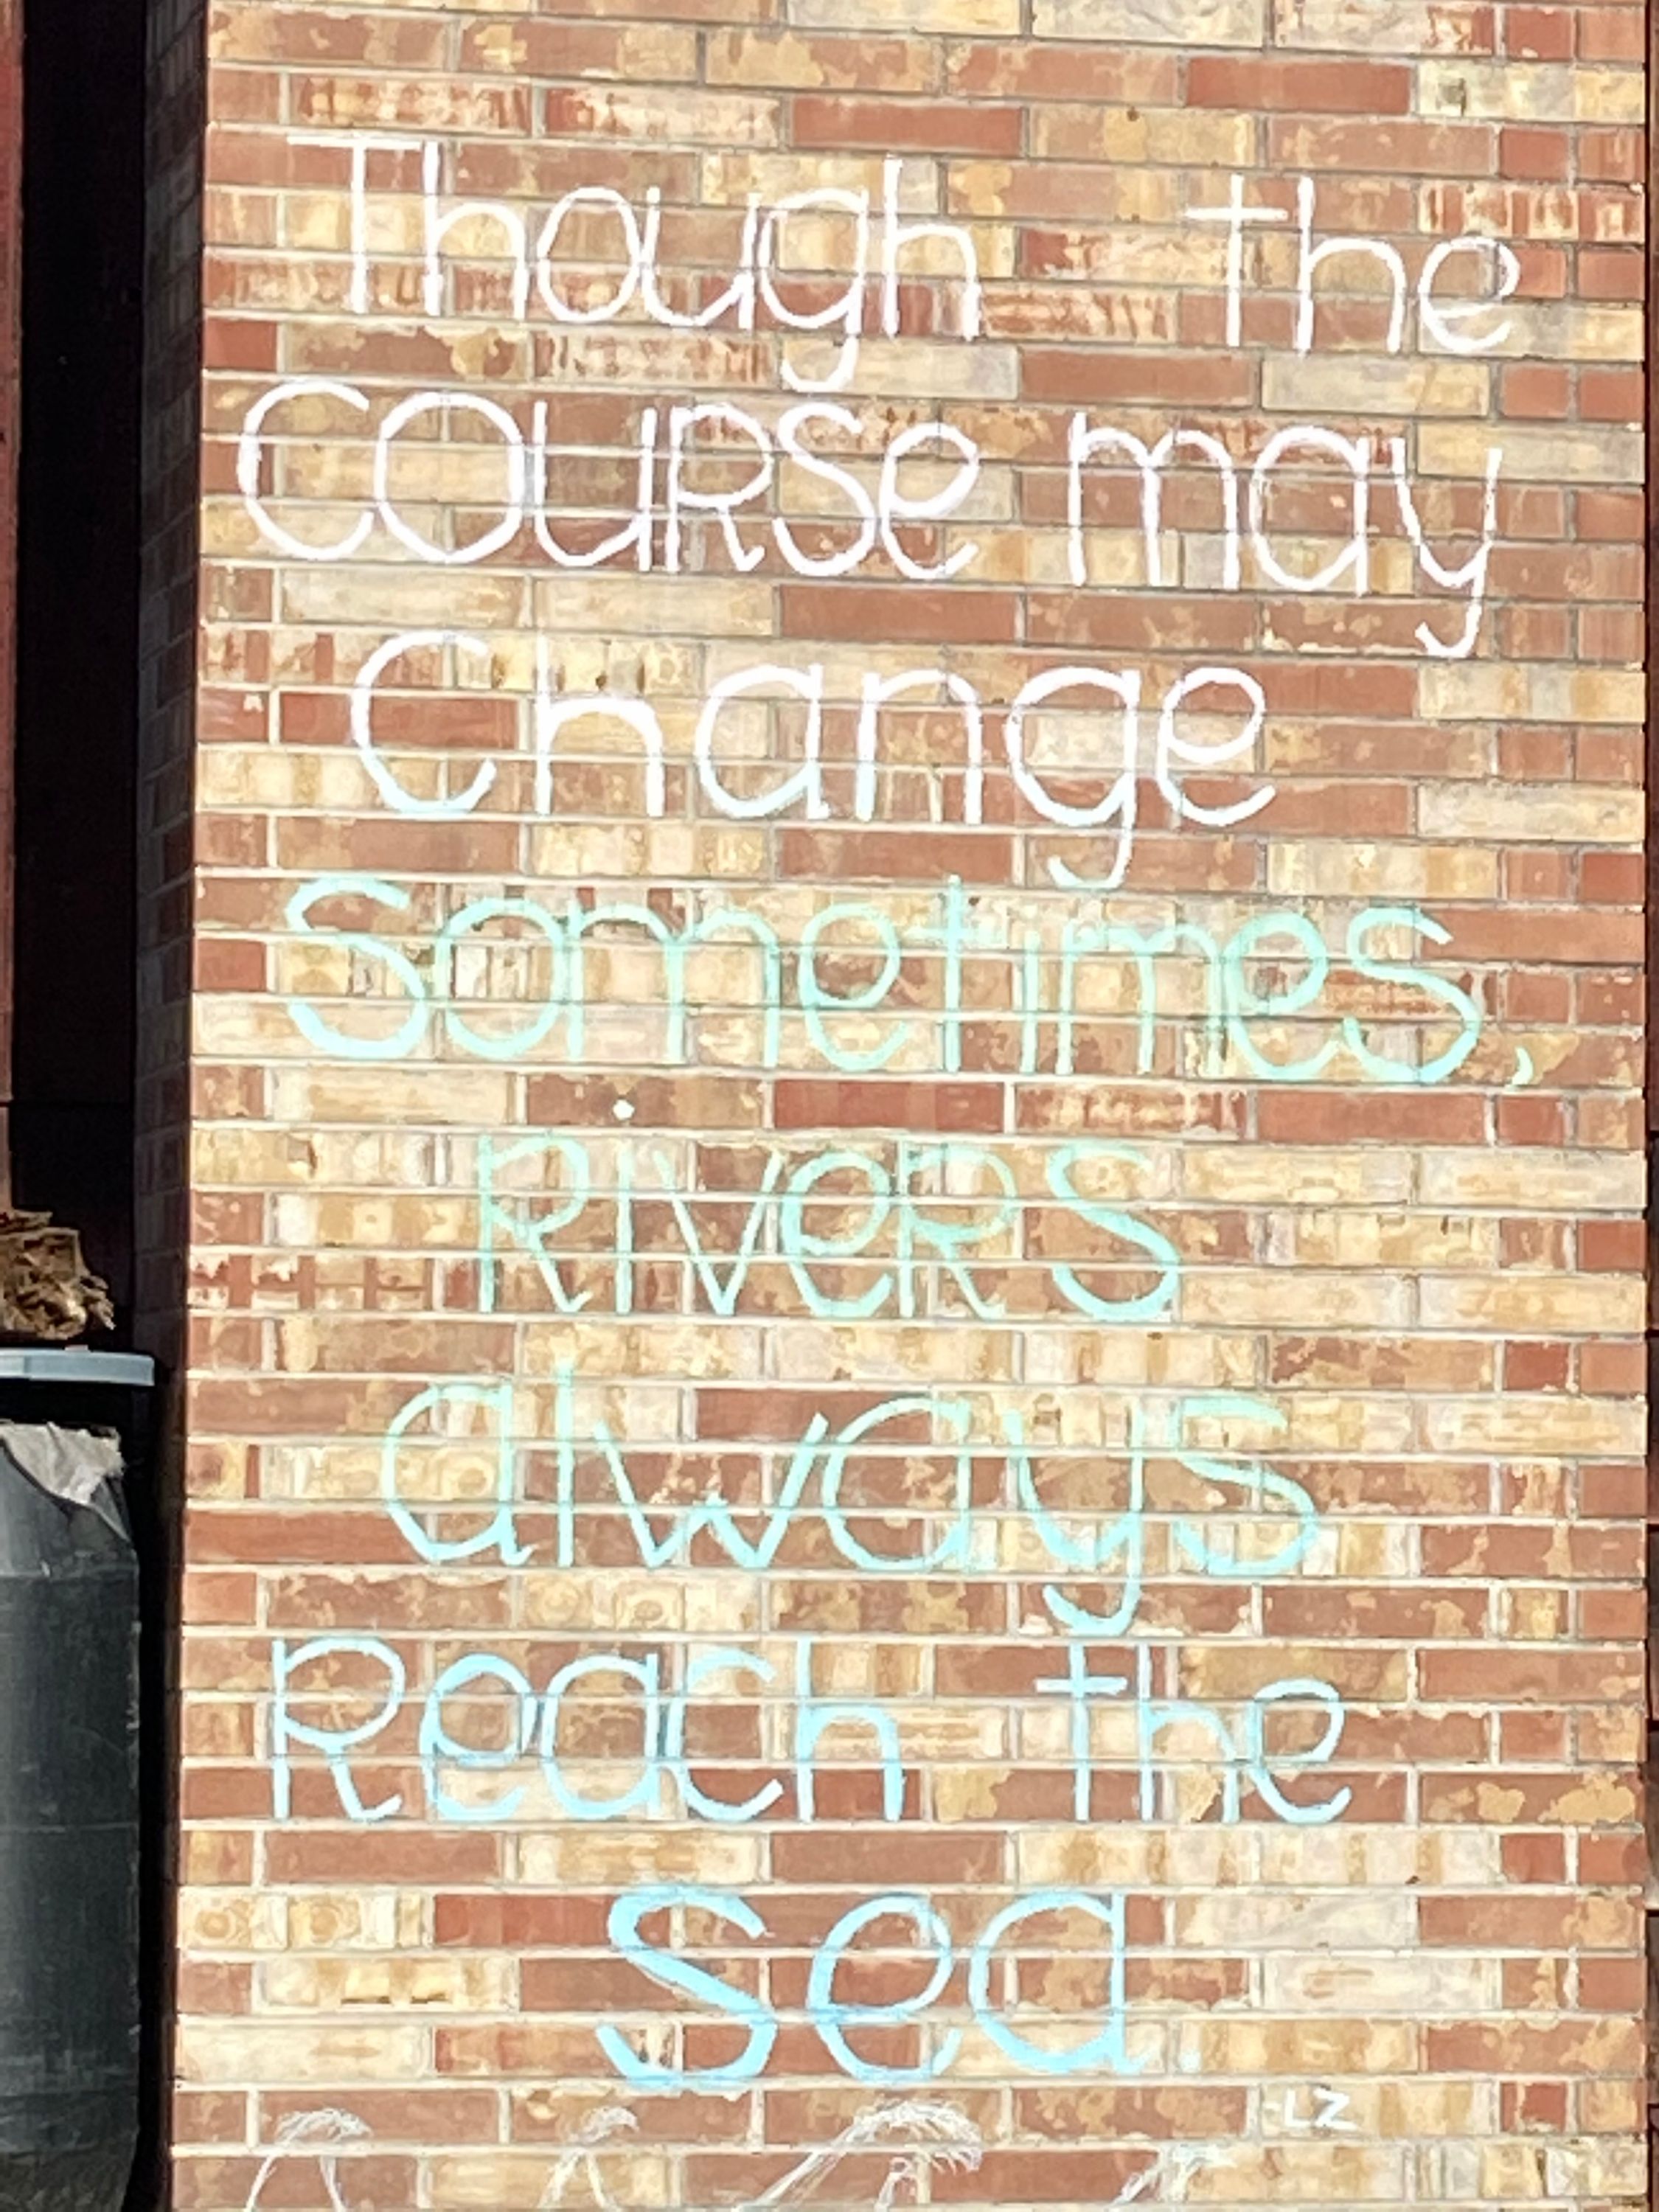 Though the
COURSe may
Change
Sometimes,
RiveRS
always
Reach the
sea.
LZ